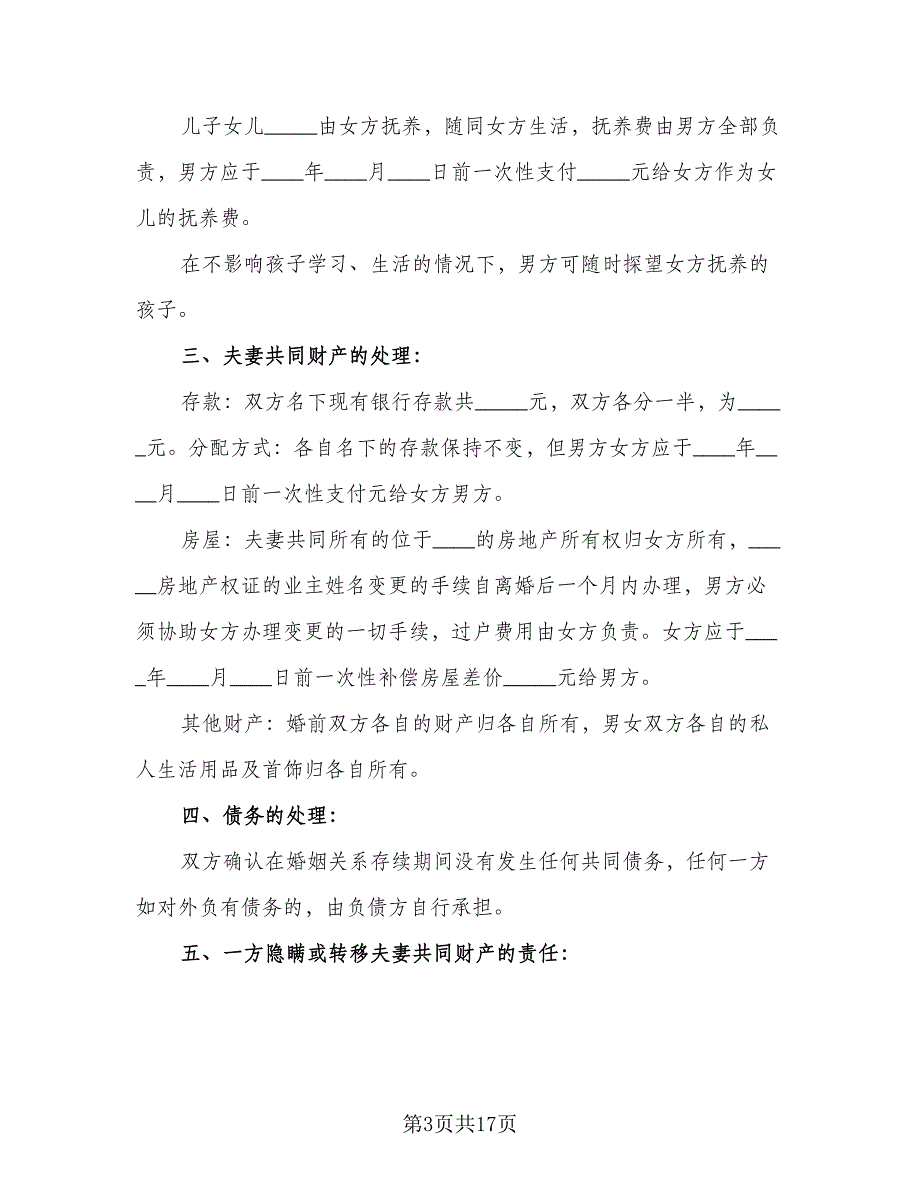 儿子女儿_____由女方抚养，随同女方生活，抚养费由男方全部负
责，男方应于____年____月____日前一次性支付_____元给女方作为女
儿的抚养费。
在不影响孩子学习、生活的情况下，男方可随时探望女方抚养的
孩子。
三、夫妻共同财产的处理：
存款：双方名下现有银行存款共_____元，双方各分一半，为____
_元。分配方式：各自名下的存款保持不变，但男方女方应于____年__
__月____日前一次性支付元给女方男方。
房屋：夫妻共同所有的位于____的房地产所有权归女方所有，___
__房地产权证的业主姓名变更的手续自离婚后一个月内办理，男方必
须协助女方办理变更的一切手续，过户费用由女方负责。女方应于___
_年____月____日前一次性补偿房屋差价_____元给男方。
其他财产：婚前双方各自的财产归各自所有，男女双方各自的私
人生活用品及首饰归各自所有。
四、债务的处理：
双方确认在婚姻关系存续期间没有发生任何共同债务，任何一方
如对外负有债务的，由负债方自行承担。
五、一方隐瞒或转移夫妻共同财产的责任：
第3页共17页